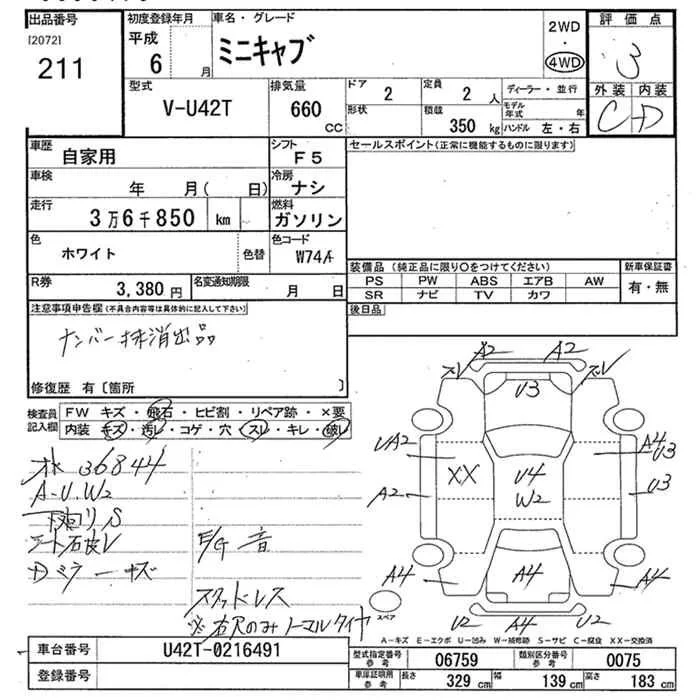 出品番号
[2072]
211
初度登録年月
平成
6 月
車名・グレード
ミニキャブ
2WD
・
4WD
評価点
3
外装 内装
C D
型式
V-U42T
排気量
660
CC
ドア
2
形状
定員
2 人
積載
350 kg
ディーラー・並行
モデル
年式 年
ハンドル 左・右
車歴
自家用
シフト
F5
セールスポイント(正常に機能するものに限ります)
車検
年 月( 日)
冷房
ナシ
走行
3万6千850 km
燃料
ガソリン
色
ホワイト
色替
色コード
W74A
装備品 (純正品に限り〇をつけてください)
PS PW ABS エアB AW
SR ナビ TV カワ
新車保証書
有・無
R券
3,380 円
名変通知期限
月 日
後日品
注意事項申告欄(不具合内容等は具体的に記入して下さい)
ナンバー抹消出品
修復歴 有〔箇所 〕
検査員
記入欄
FW キズ・飛石・ヒビ割・リペア跡・×要
内装 キズ・汚レ・コゲ・穴・スレ・キレ・破レ
36844
A-U.W2
下回リS
シート石皮レ
Dミラーキズ
E/G 音
スタッドレス
※右Rのみノーマルタイヤ
スレ A2 A2 スレ
U3
UA2 A4 U3
XX U4
W2
A2 U3
A4 A4 A4
U2 A4 U2
スペア
A-キズ E-エクボ U-凹み W-補修跡 S-サビ C-腐食 XX-交換済
車台番号
U42T-0216491
登録番号
型式指定番号
参考
06759
類別区分番号
参考
0075
車庫証明用
参考
長さ 329 cm
幅 139 cm
高さ 183 cm